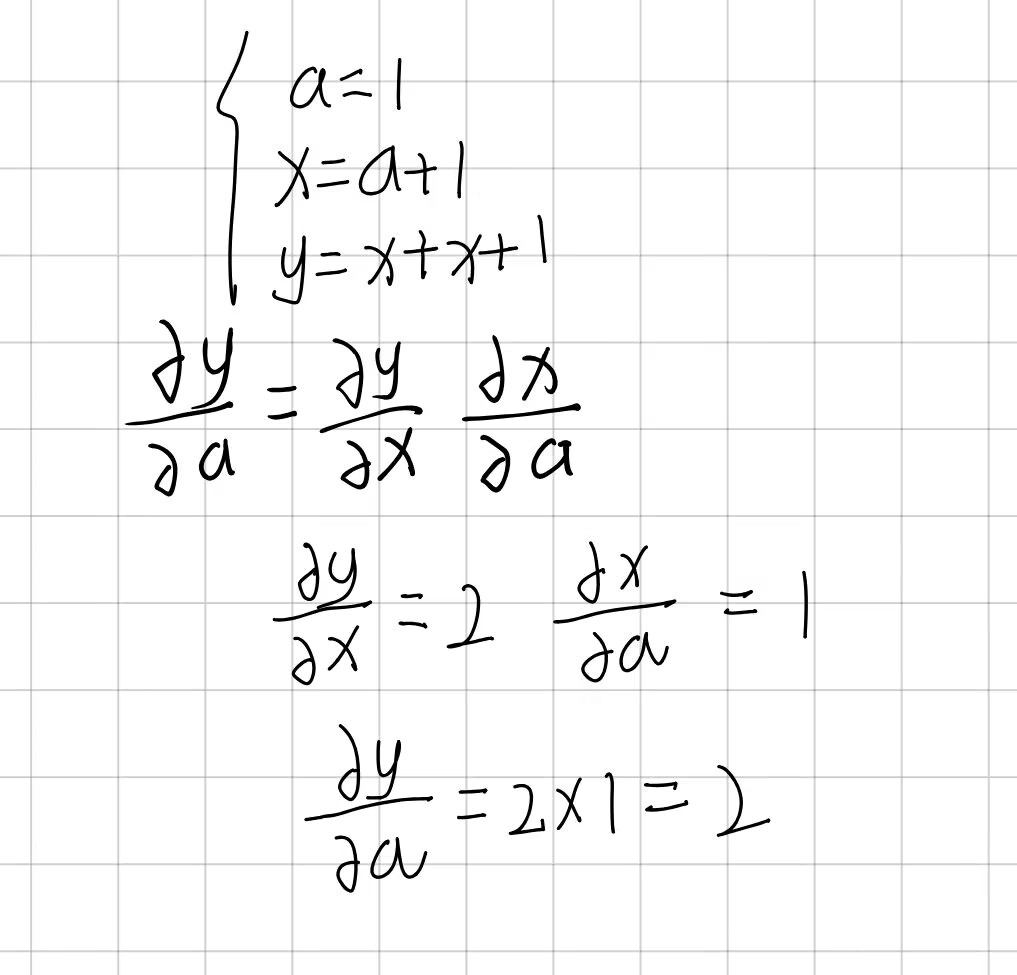 a=1
x=a+1
y=x+x+1
∂y/∂a = ∂y/∂x ∂x/∂a
∂y/∂x = 2 ∂x/∂a = 1
∂y/∂a = 2×1 = 2